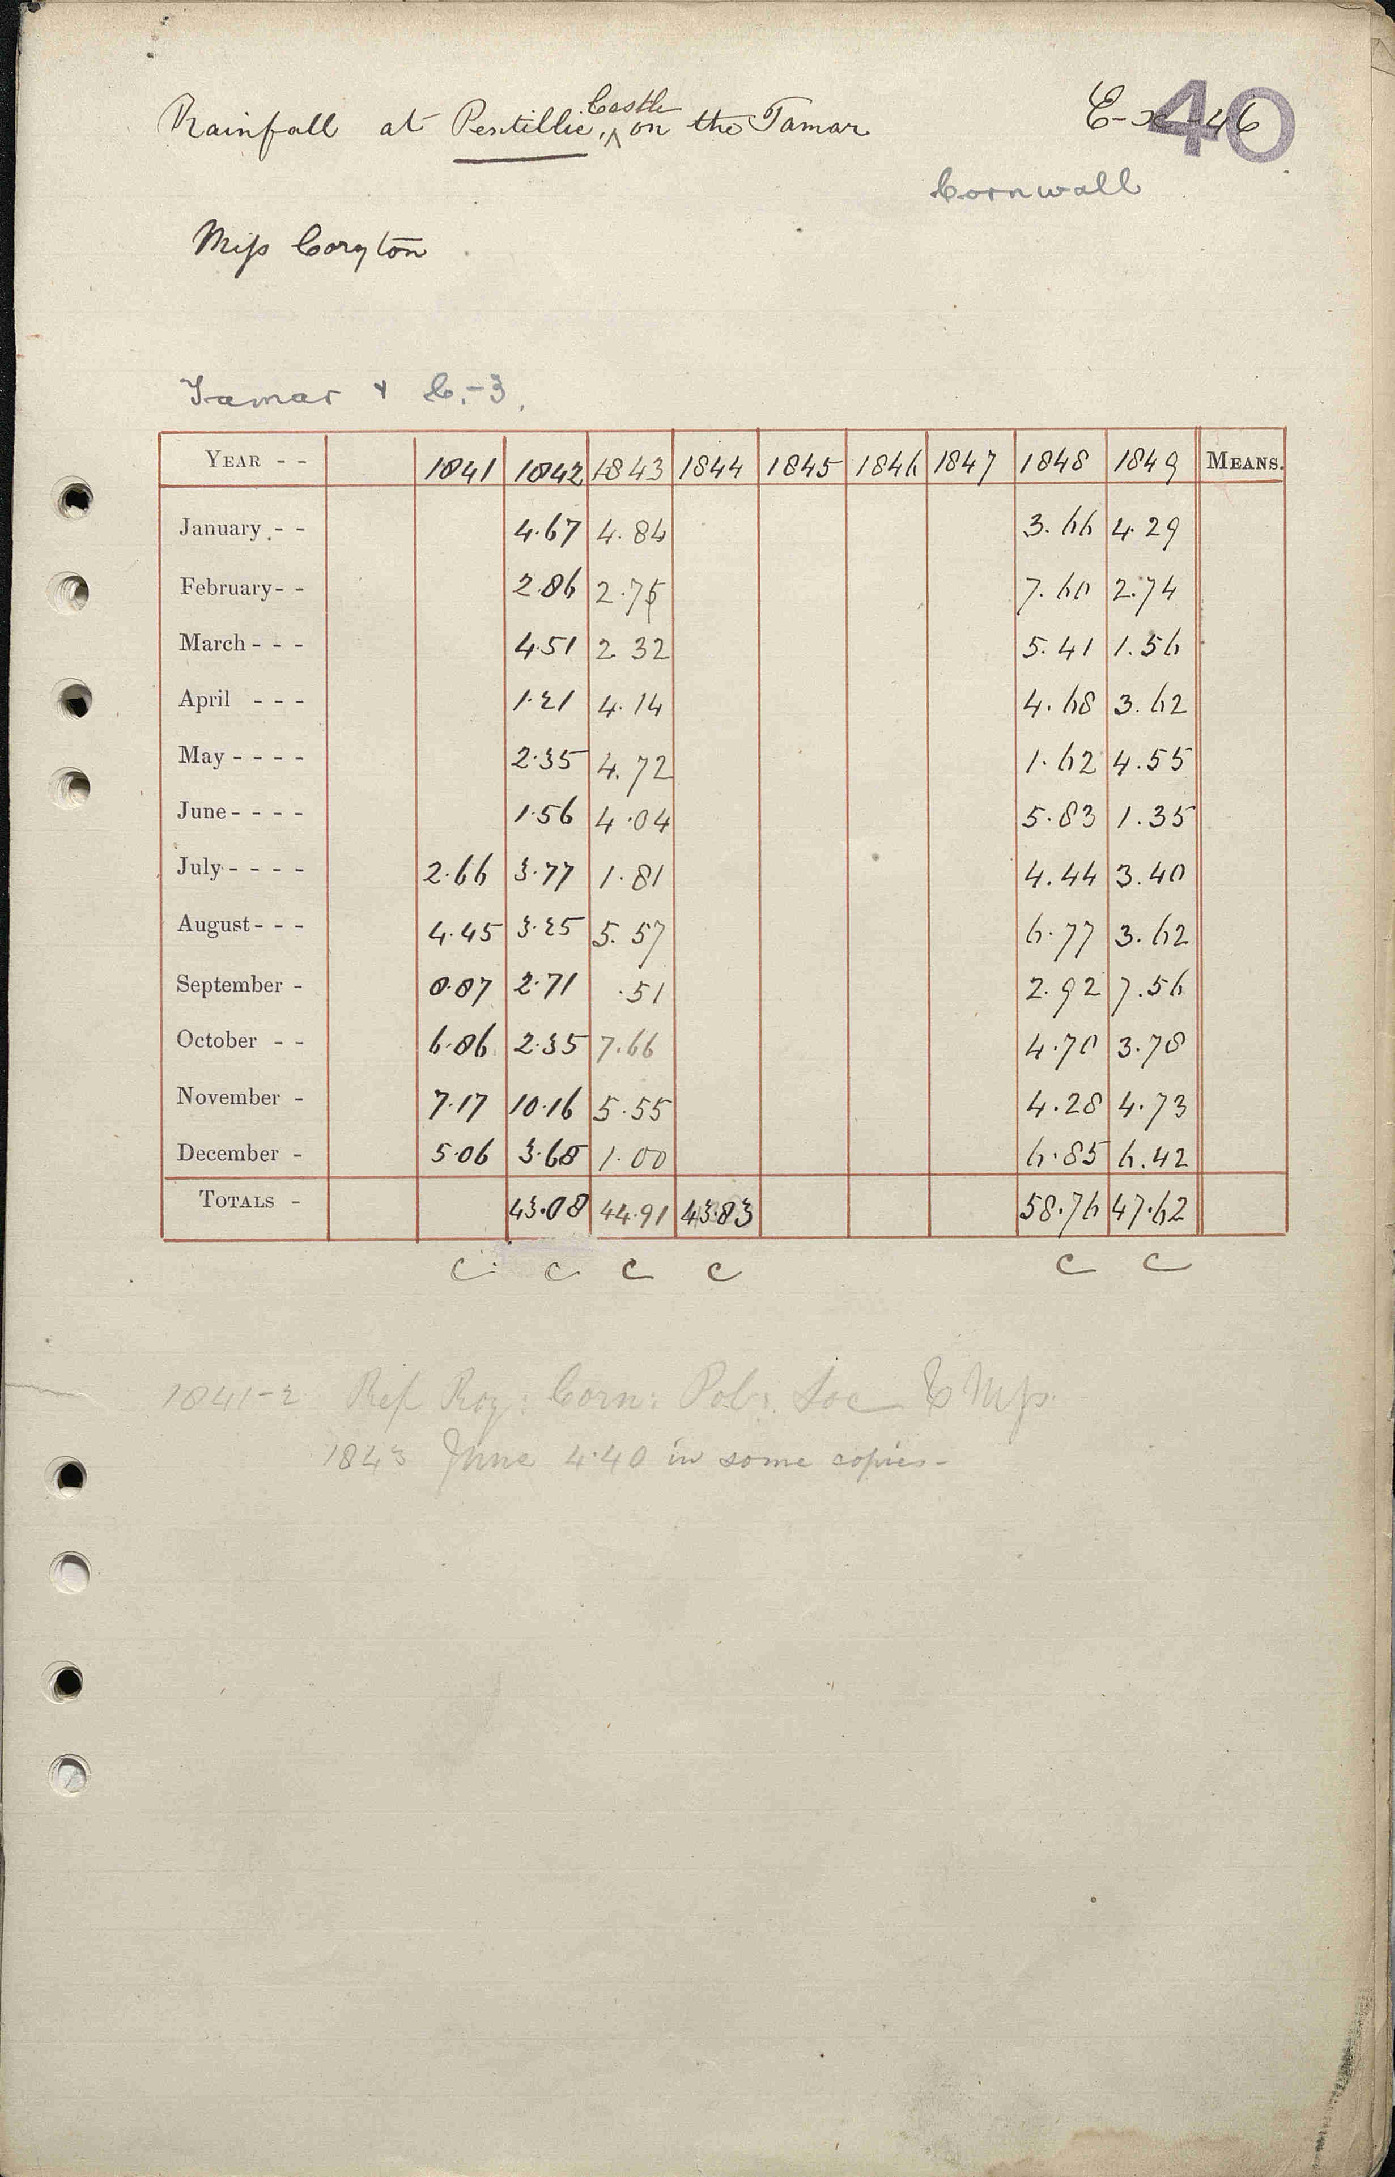 Rainfall at Pentillie Castle, on the Tamar
40
Cornwall
Miss Coryton
Tamar & C.-3.
YEAR - - 1841 1842 1843 1844 1845 1846 1847 1848 1849 MEANS.
January - - 4.67 4.84 3.66 4.29
February - - 2.86 2.75 7.60 2.74
March - - - 4.51 2.32 5.41 1.56
April - - - 1.21 4.14 4.68 3.62
May - - - - 2.35 4.72 1.62 4.55
June - - - - 1.56 4.04 5.83 1.35
July - - - - 2.66 3.77 1.81 4.44 3.40
August - - - 4.45 3.25 5.57 6.77 3.62
September - 8.87 2.71 .51 2.92 7.56
October - - 6.86 2.35 7.66 4.70 3.78
November - 7.17 10.16 5.55 4.28 4.73
December - 5.06 3.68 1.00 6.85 6.42
TOTALS - 43.08 44.91 43.83 58.76 47.62
C C C C C C
1841-2 Ref Roy: Corn: Pol: Soc
1843 June 4.40 in some copies-